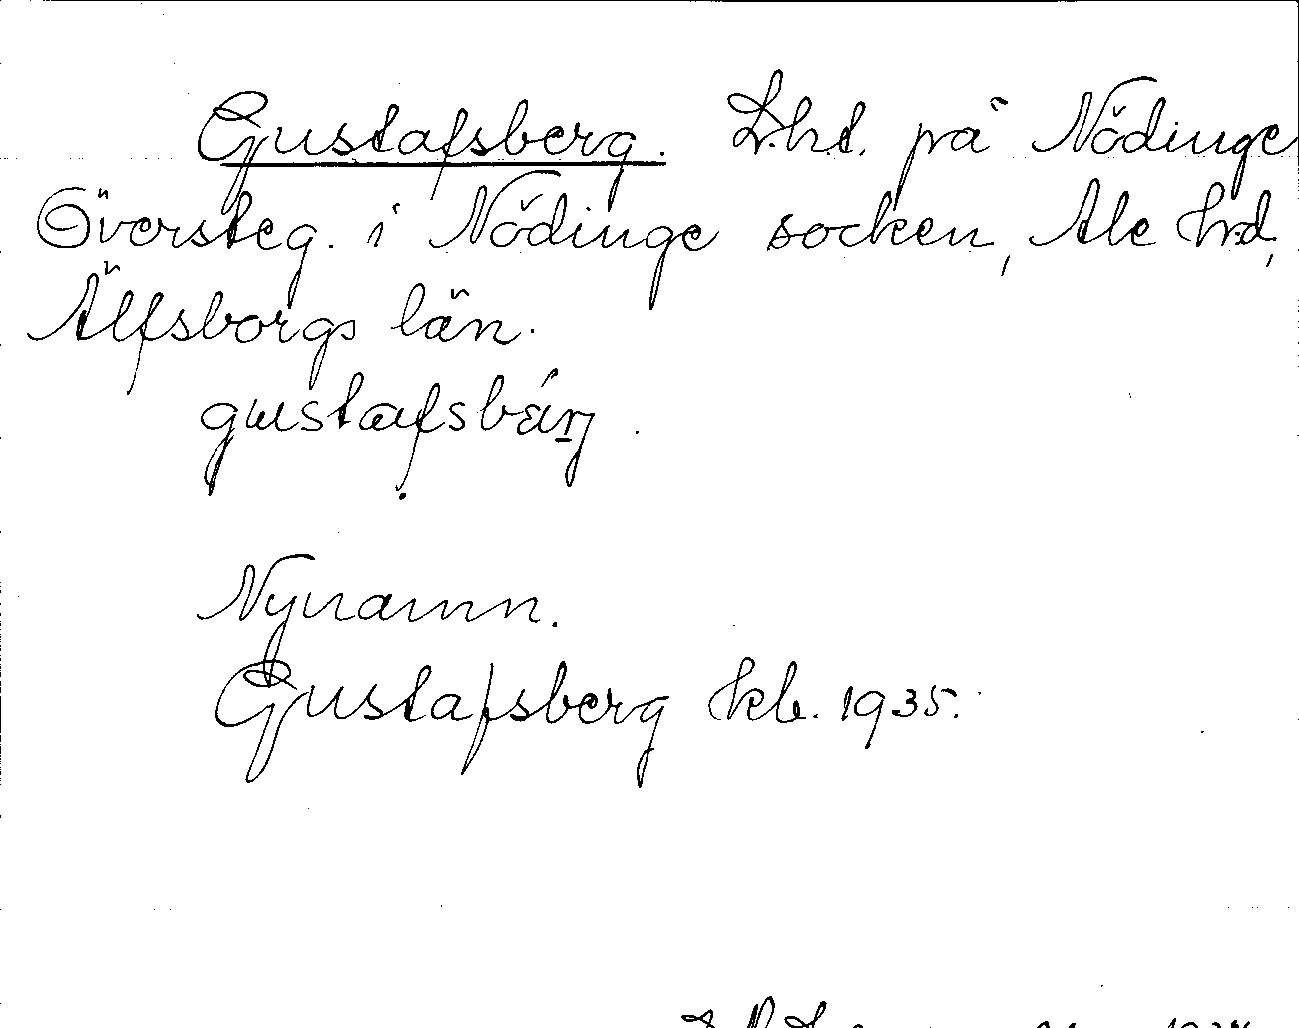 Gustafsberg. Lht. på Nödinge
Översteg. i Nödinge socken, Ale hrd,
Älfsborgs län.
gustafsbærj.
Nynamn.
Gustafsberg kb. 1935.